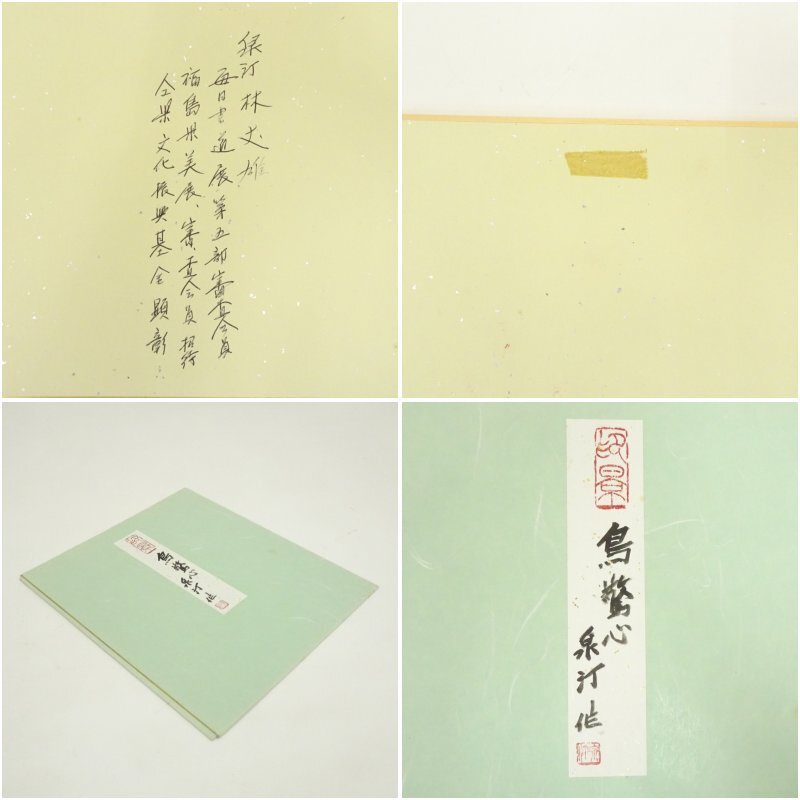 泉汀 林 文雄
毎日書道展第五部審査会員
福島県美展、審査会員 招待
仝県文化振興基金顕彰
鳥驚心
泉汀作
鳥驚心
泉汀作